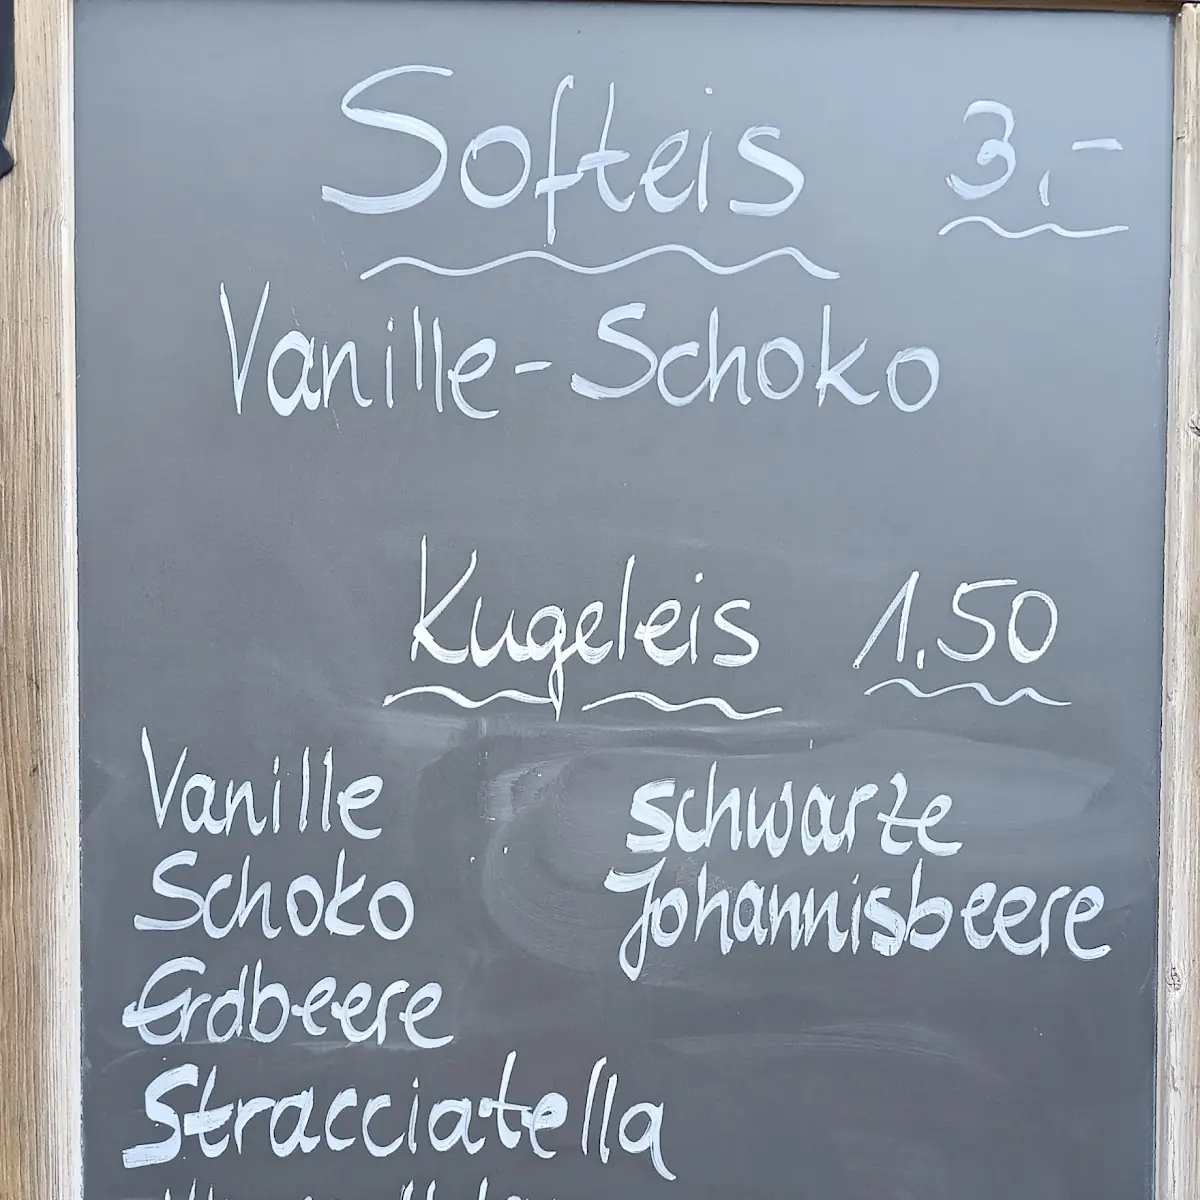 Softeis 3,-
Vanille-Schoko
Kugeleis 1.50
Vanille
Schoko
Erdbeere
Stracciatella
schwarze
Johannisbeere